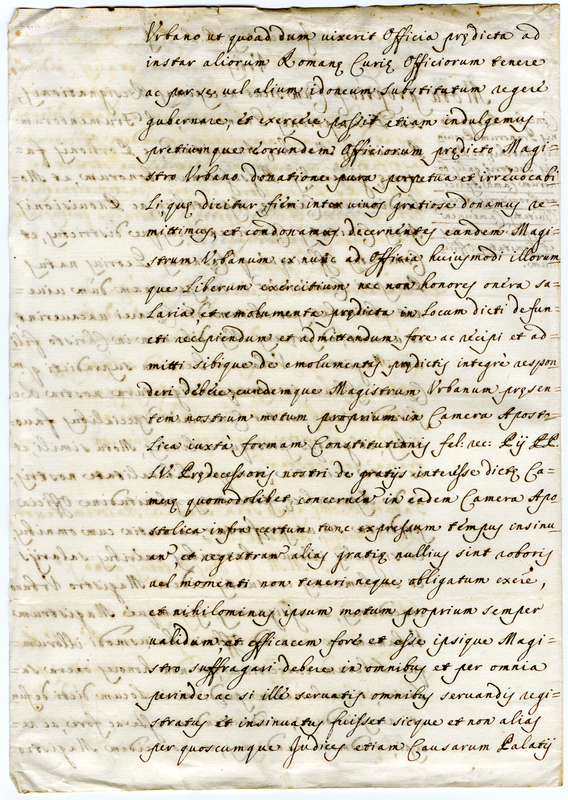 Vrbano ut quoad dum vixerit Officia prędicta ad
instar aliorum Romanę Curię Officiorum tenere
ac per se, vel alium idoneum substitutum regere
gubernare, et exercere possit etiam indulgemus
pretiumque eorundem Officiorum prędicto Magi=
stro Vrbano donatione pura perpetua et irrevocabi
li, quę dicitur fieri inter vivos gratiose donamus re=
mittimus, et condonamus decernentes eundem Magi=
strum Vrbanum ex nunc ad Officia huiusmodi illorum
que liberum exercitium nec non honores onera sa=
laria et emolumenta prędicta in locum dicti defun=
cti recipiendum et admittendum fore ac recipi et ad=
mitti sibique de emolumentis prędictis integrè respon=
deri debere, eundemque Magistrum Vrbanum pręsen=
tem nostrum motum proprium in Camera Aposto=
lica iuxtà formam Constitutionis fel: rec: Pij PP.
IV. Prędecessoris nostri de gratijs interesse dictę Ca=
merę quomodolibet concernen in eadem Camera Apo
stolica infrà certum tunc expressum tempus insinu=
an, et registran alias gratię nullius sint roboris
vel momenti non teneri neque obligatum existere,
et nihilominus ipsum motum proprium semper
validum, et efficacem fore et esse ipsique Magi=
stro suffragari debere in omnibus et per omnia
perinde ac si ille servatis omnibus servandis regi=
stratus et insinuatus fuisset sicque et non alias
per quoscumque Judices etiam Causarum Palatij